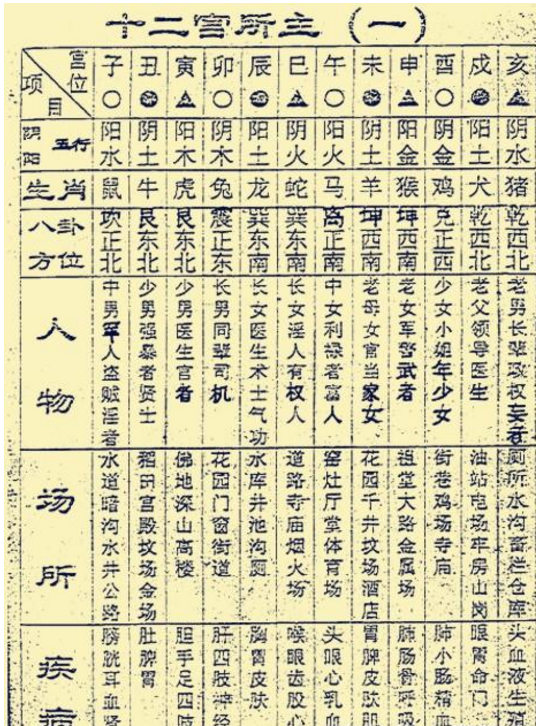 十二宫所主 (一)
宫位 项目 子 丑 寅 卯 辰 巳 午 未 申 酉 戌 亥
○ ▲ ○ ▲ ○ ▲ ○ ▲
阴阳 五行 阳水 阴土 阳木 阴木 阳土 阴火 阳火 阴土 阳金 阴金 阳土 阴水
生肖 鼠 牛 虎 兔 龙 蛇 马 羊 猴 鸡 犬 猪
八卦方位 坎正北 艮东北 艮东北 震正东 巽东南 巽东南 离正南 坤西南 坤西南 兑正西 乾西北 乾西北
人物
中男罕人盗贼淫者
少男强暴者贤士
少男医生官者
长男同辈司机
长女医生术士气功
长女淫人有权人
中女利禄者富人
老母女官当家女
老女军警武者
少女小姐年少女
老父领导医生
老男长辈政权妄者
场所
水道暗沟水井公路
稻田宫殿坟场金场
佛地深山高楼
花园门窗街道
水库井池沟厕
道路寺庙烟火场
窑灶厅堂体育场
花园千井坟场酒店
祖堂大路金属场
街巷鸡场寺庙
油站电场牢房山岗
厕所水沟畜栏仓库
疾病
膀胱耳血肾
肚脾胃
胆手足四肢
肝四肢神经
胸胃皮肤
喉眼齿股心
头眼心乳血
胃脾皮肤胆
肺肠骨呼吸
肺小肠精血
眼胃命门
头血液生